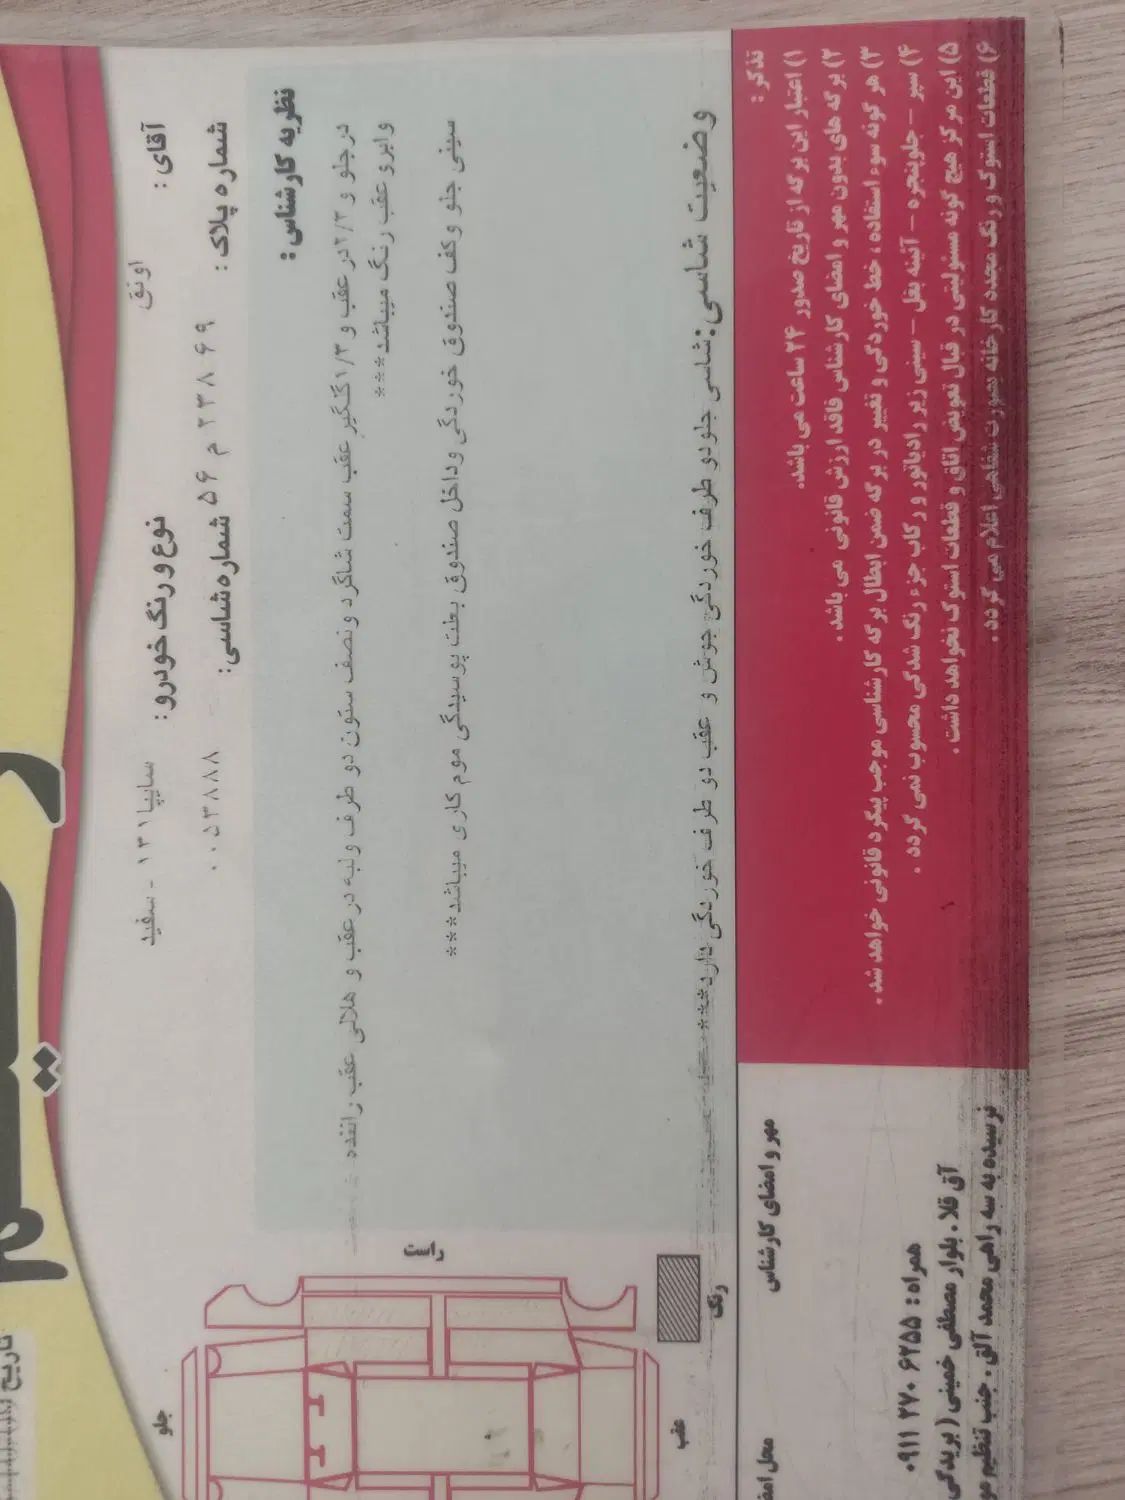 آقای : اونق
نوع و رنگ خودرو : سایپا ۱۳۱ - سفید
شماره پلاک : ۶۹ ۲۳۸ م ۵۶
شماره شاسی: ۰۰۵۳۸۸۸
نظریه کارشناس :
در جلو و ۲/۳ در عقب و ۱/۳ گلگیر عقب سمت شاگرد و نصف ستون دو طرف و لبه در عقب و هلالی عقب راننده
و ابرو عقب رنگ میباشد***
سینی جلو و کف صندوق خوردگی و داخل صندوق بعلت پوسیدگی موم کاری میباشد***
وضعیت شاسی: شاسی جلو دو طرف خوردگی جوش و عقب دو طرف خوردگی دارد***
تذکر :
۱) اعتبار این برگه از تاریخ صدور ۲۴ ساعت می باشد.
۲) برگه های بدون مهر و امضای کارشناس فاقد ارزش قانونی می باشد .
۳) هر گونه سوء استفاده ، خط خوردگی و تغییر در برگه ضمن ابطال برگه کارشناسی موجب پیگرد قانونی خواهد شد .
۴) سپر - جلوپنجره - آئینه بغل - سینی زیر رادیاتور و رکاب جزء رنگ شدگی محسوب نمی گردد .
۵) این مرکز هیچ گونه مسئولیتی در قبال تعویض اتاق و قطعات استوک نخواهد داشت .
۶) قطعات استوک و رنگ مجدد کارخانه بصورت شفاهی اعلام می گردد .
راست
جلو
عقب
رنگ
مهر و امضای کارشناس
محل
همراه : ۶۲۵۵ ۲۷۰ ۰۹۱۱
آق قلا . بلوار مصطفی خمینی ( بریدگی
نرسیده به سه راهی محمد آلق . جنب تنظیم مو
تاریخ